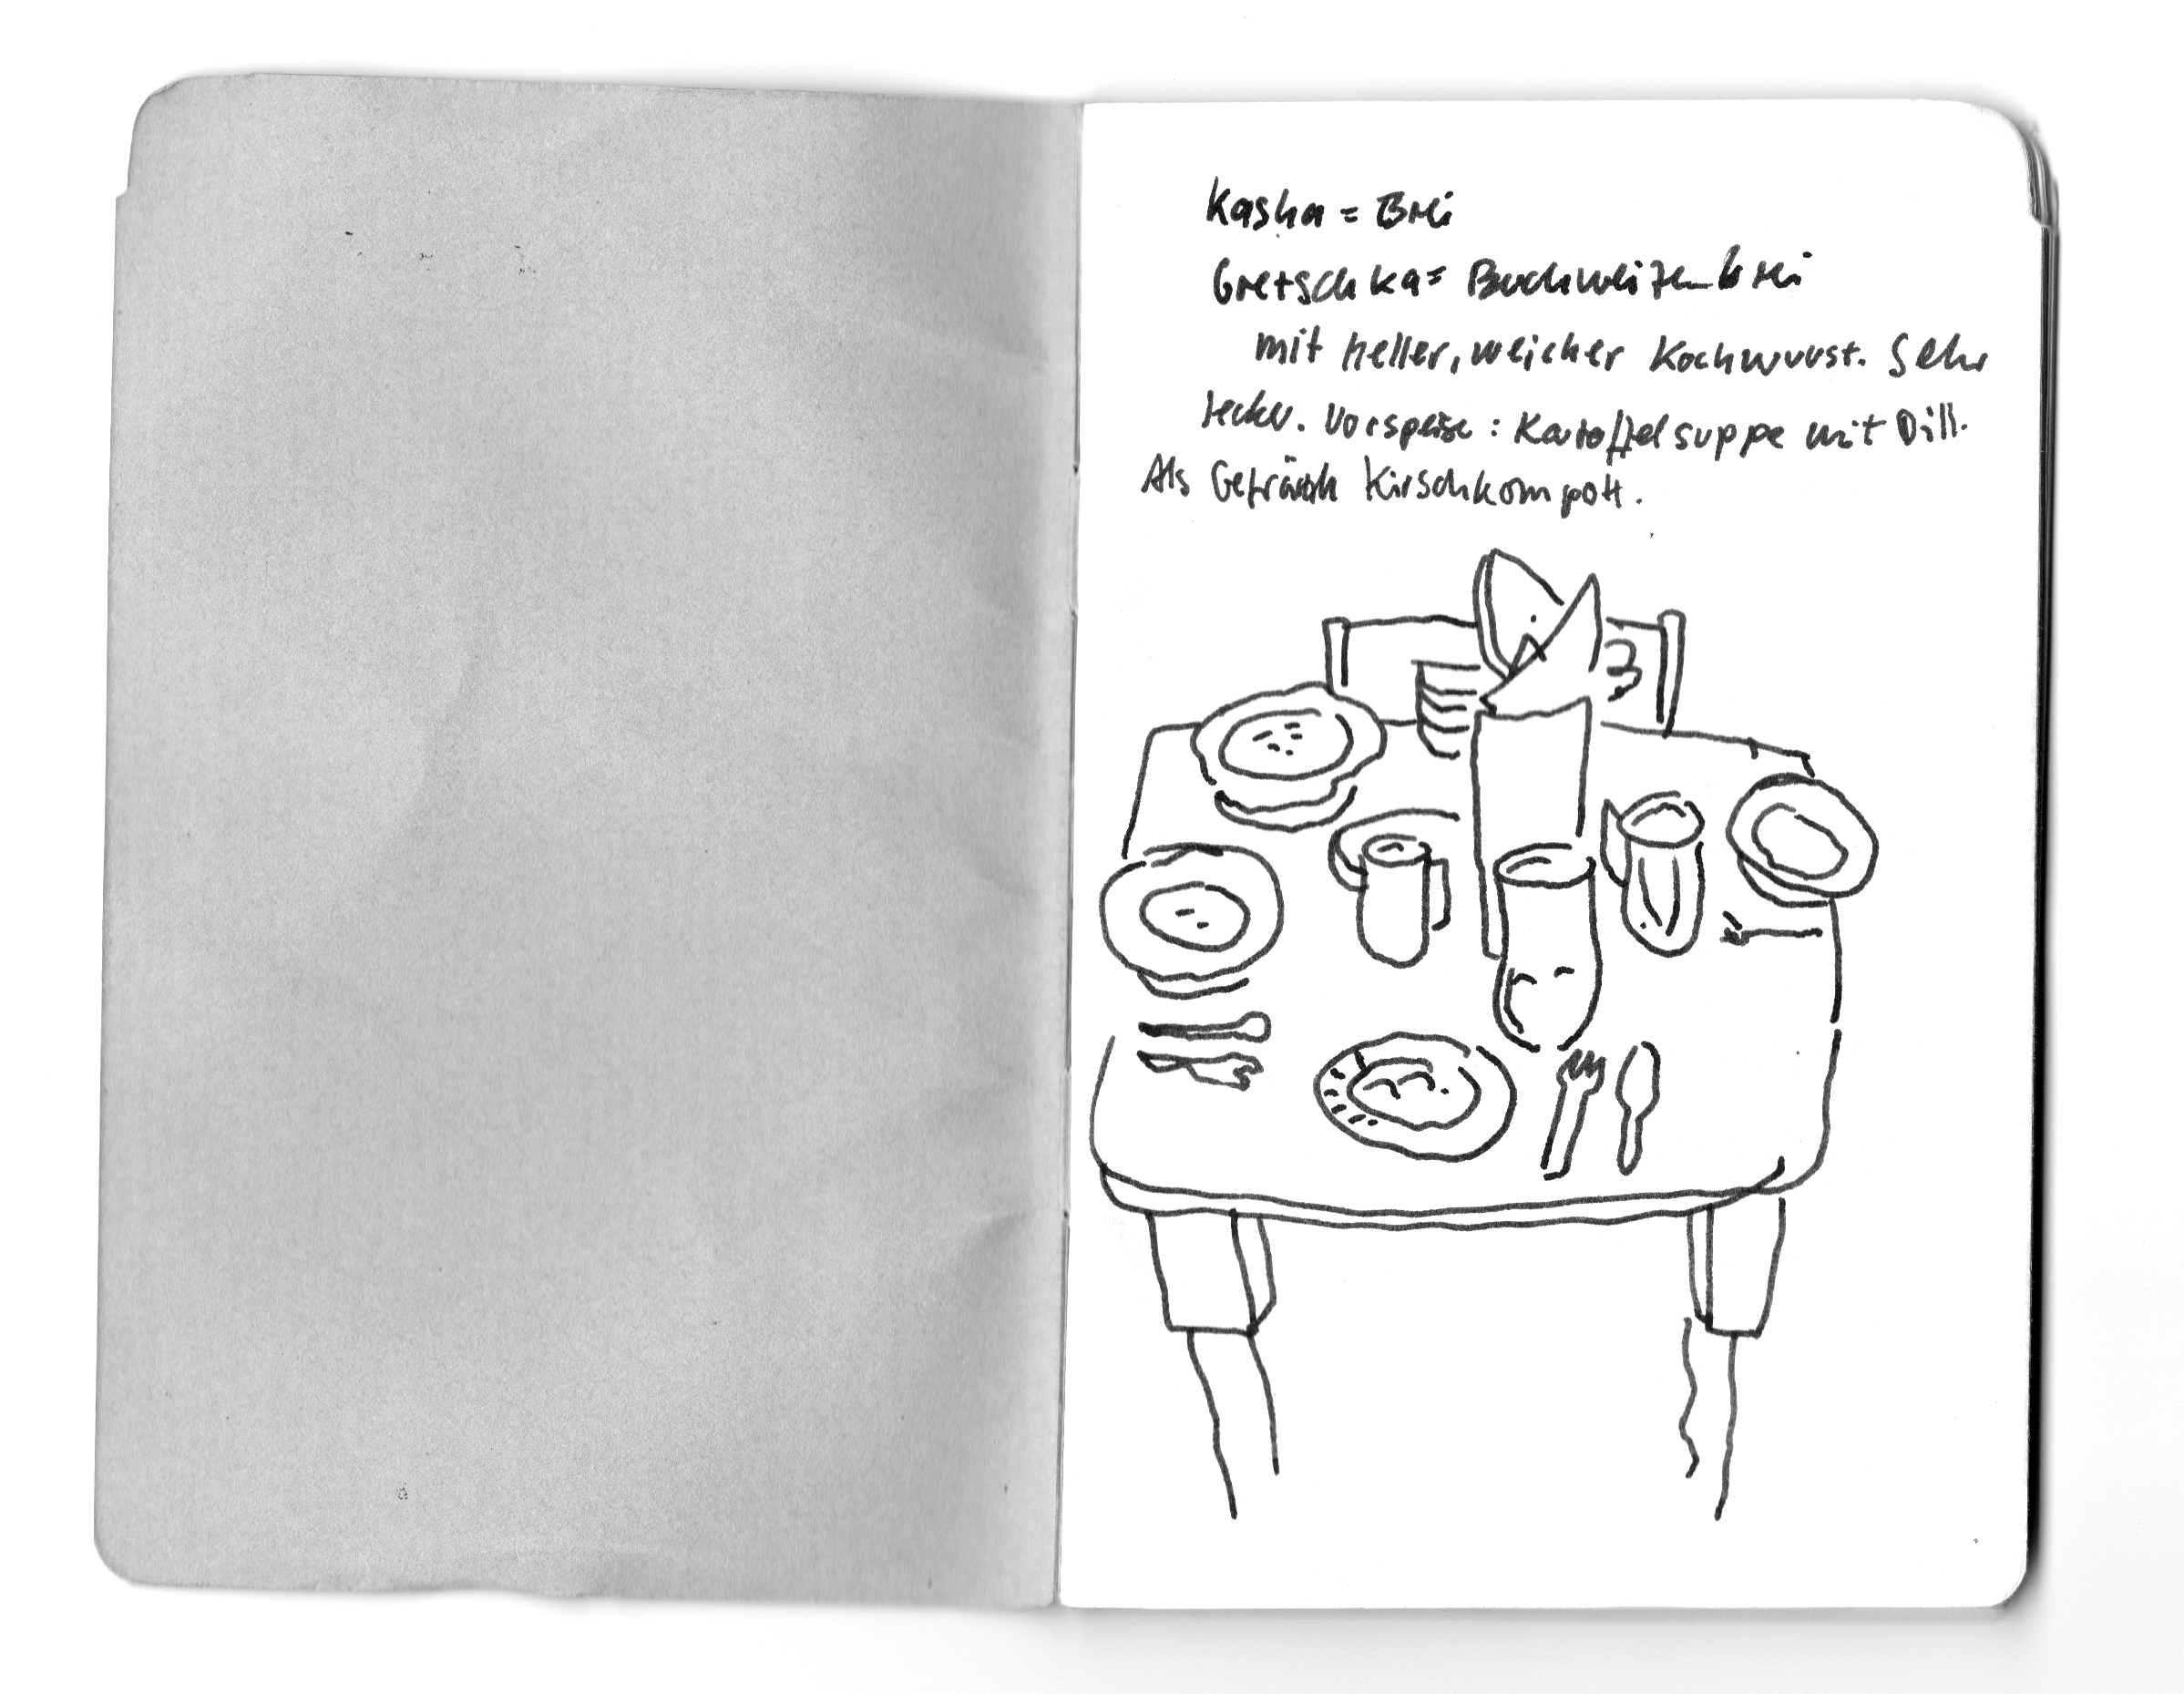 Kasha = Brei
Gretschka = Buchweizenbrei
mit heller, weicher Kochwurst. Sehr
lecker. Vorspeise: Kartoffelsuppe mit Dill.
Als Getränk Kirschkompott.